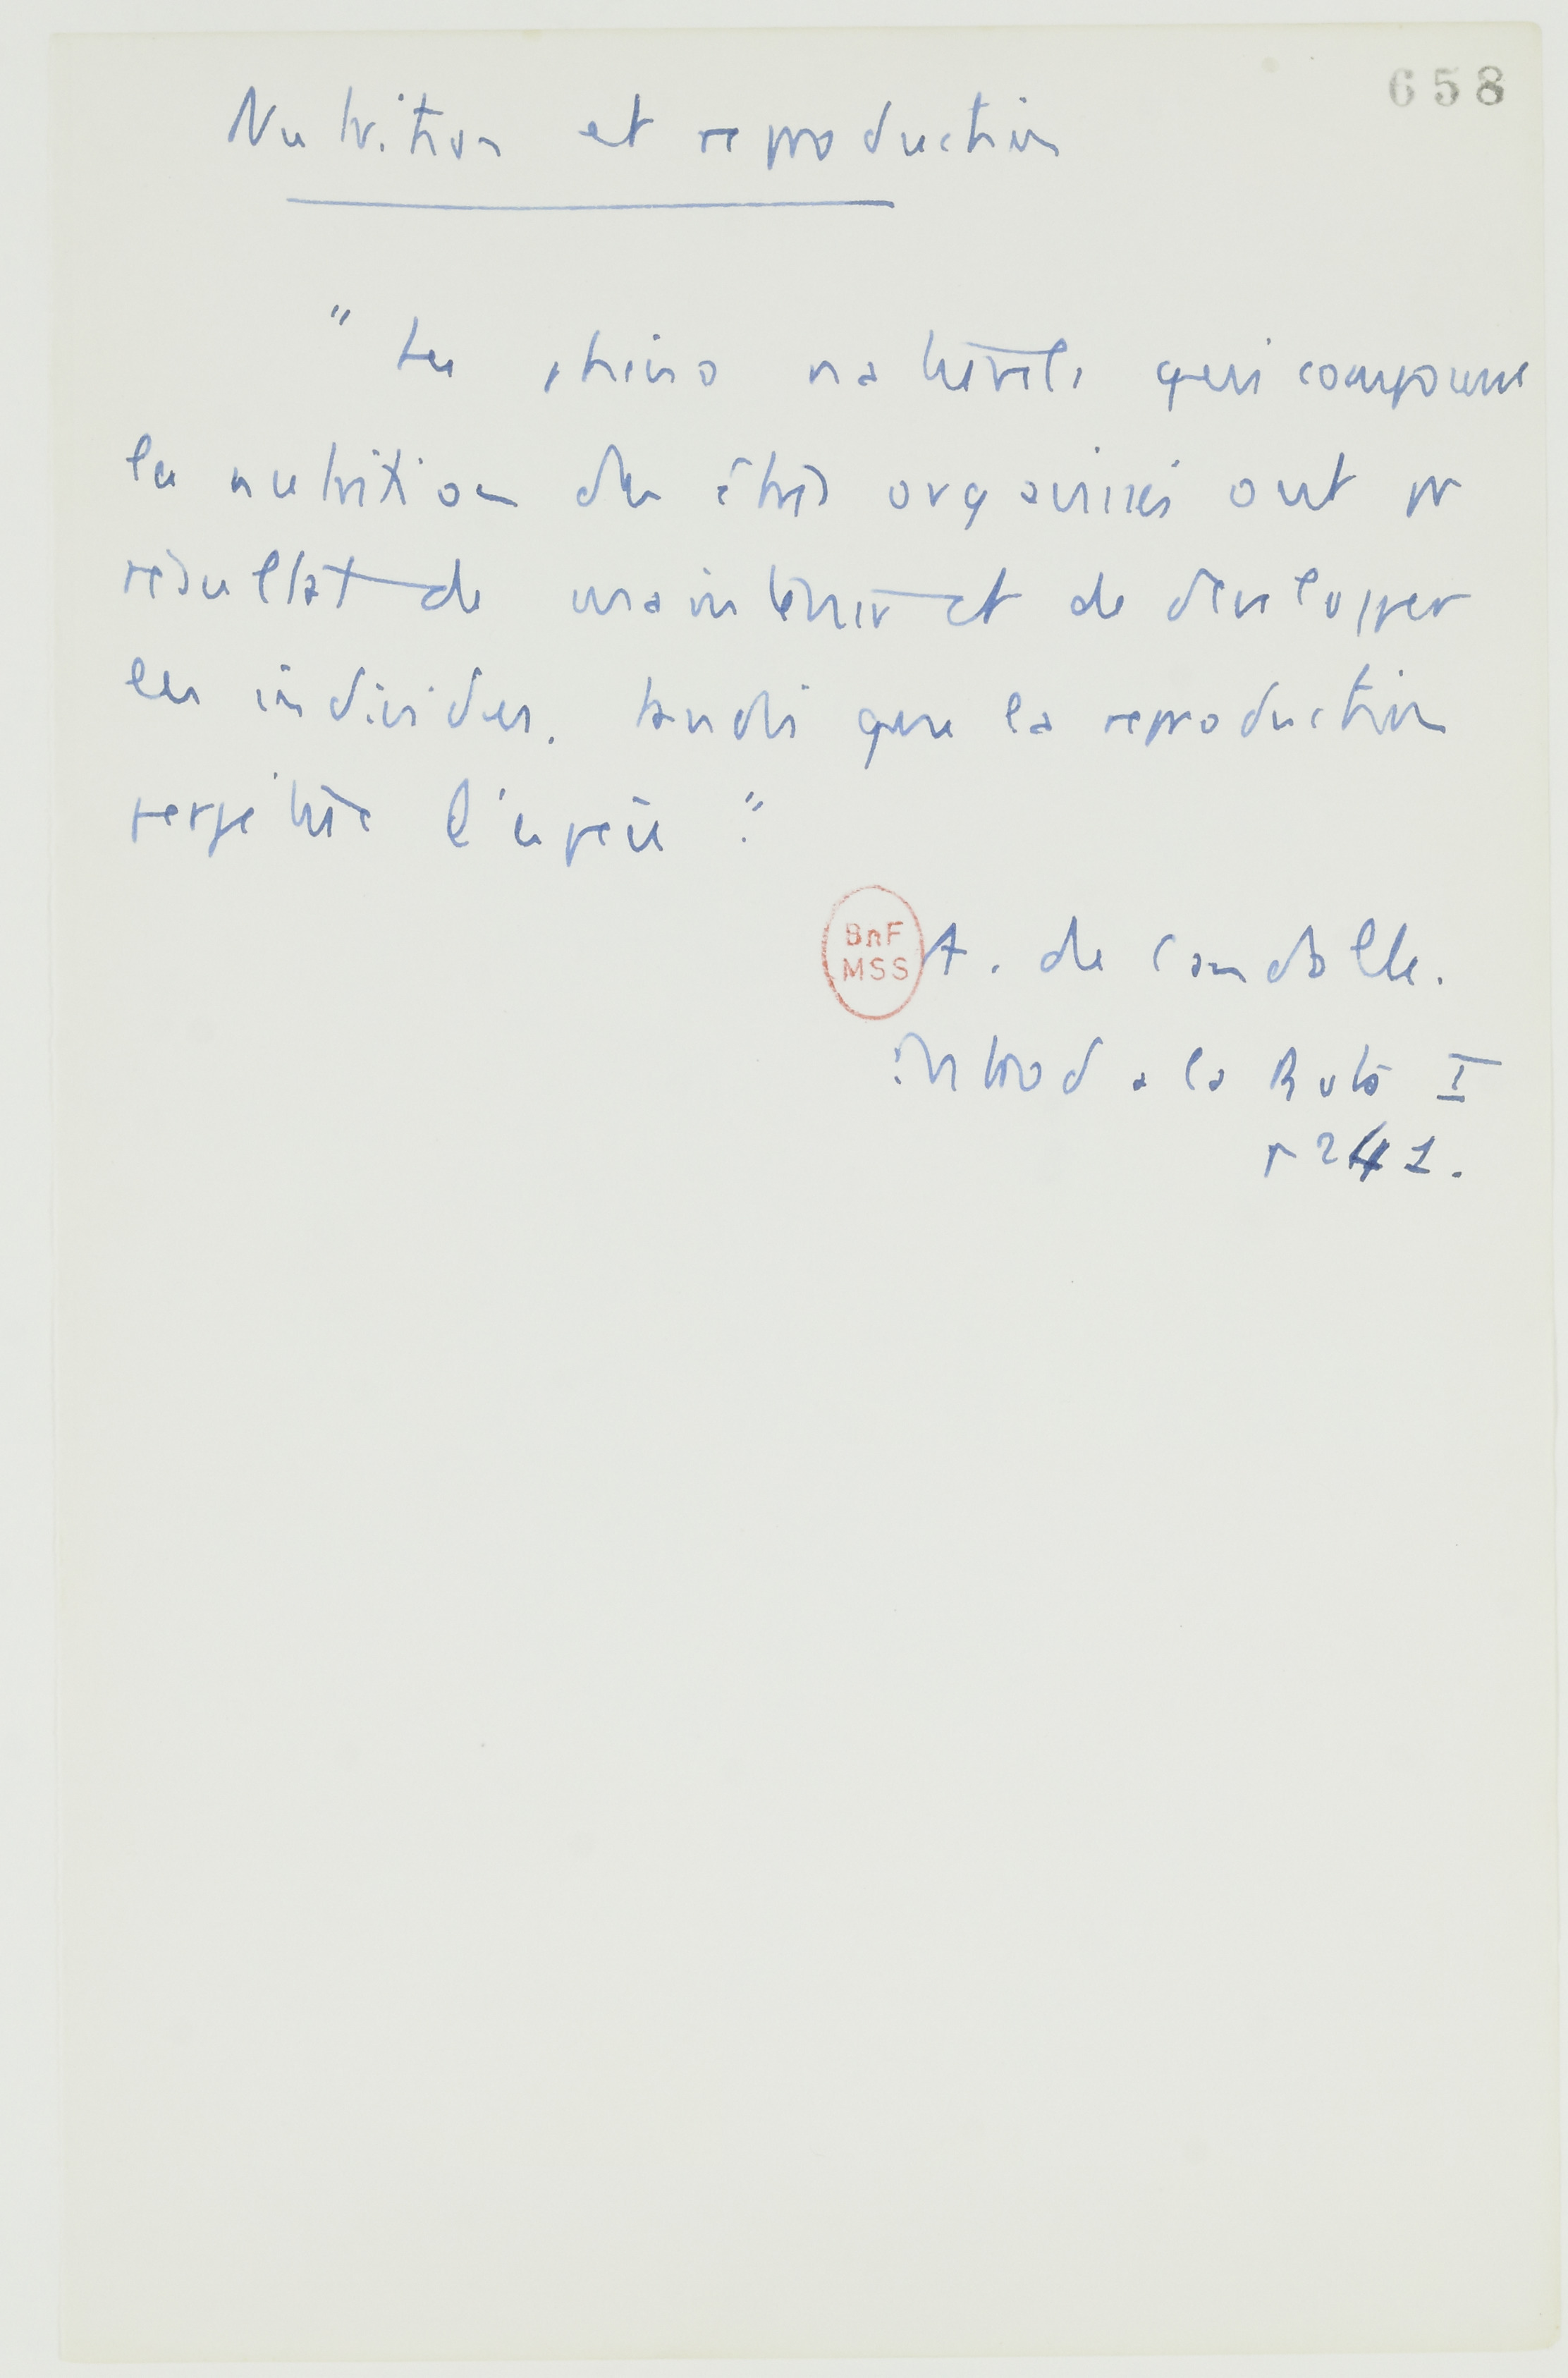 658
Nutrition et reproduction
" Les phéno naturels qui composent
la nutrition des êtres organisés ont pr
résultat de maintenir et de développer
les individus, tandis que la reproduction
perpétue l'espèce ".
BnF
MSS
A. de Candolle.
Introd à la Bota I
p 241.